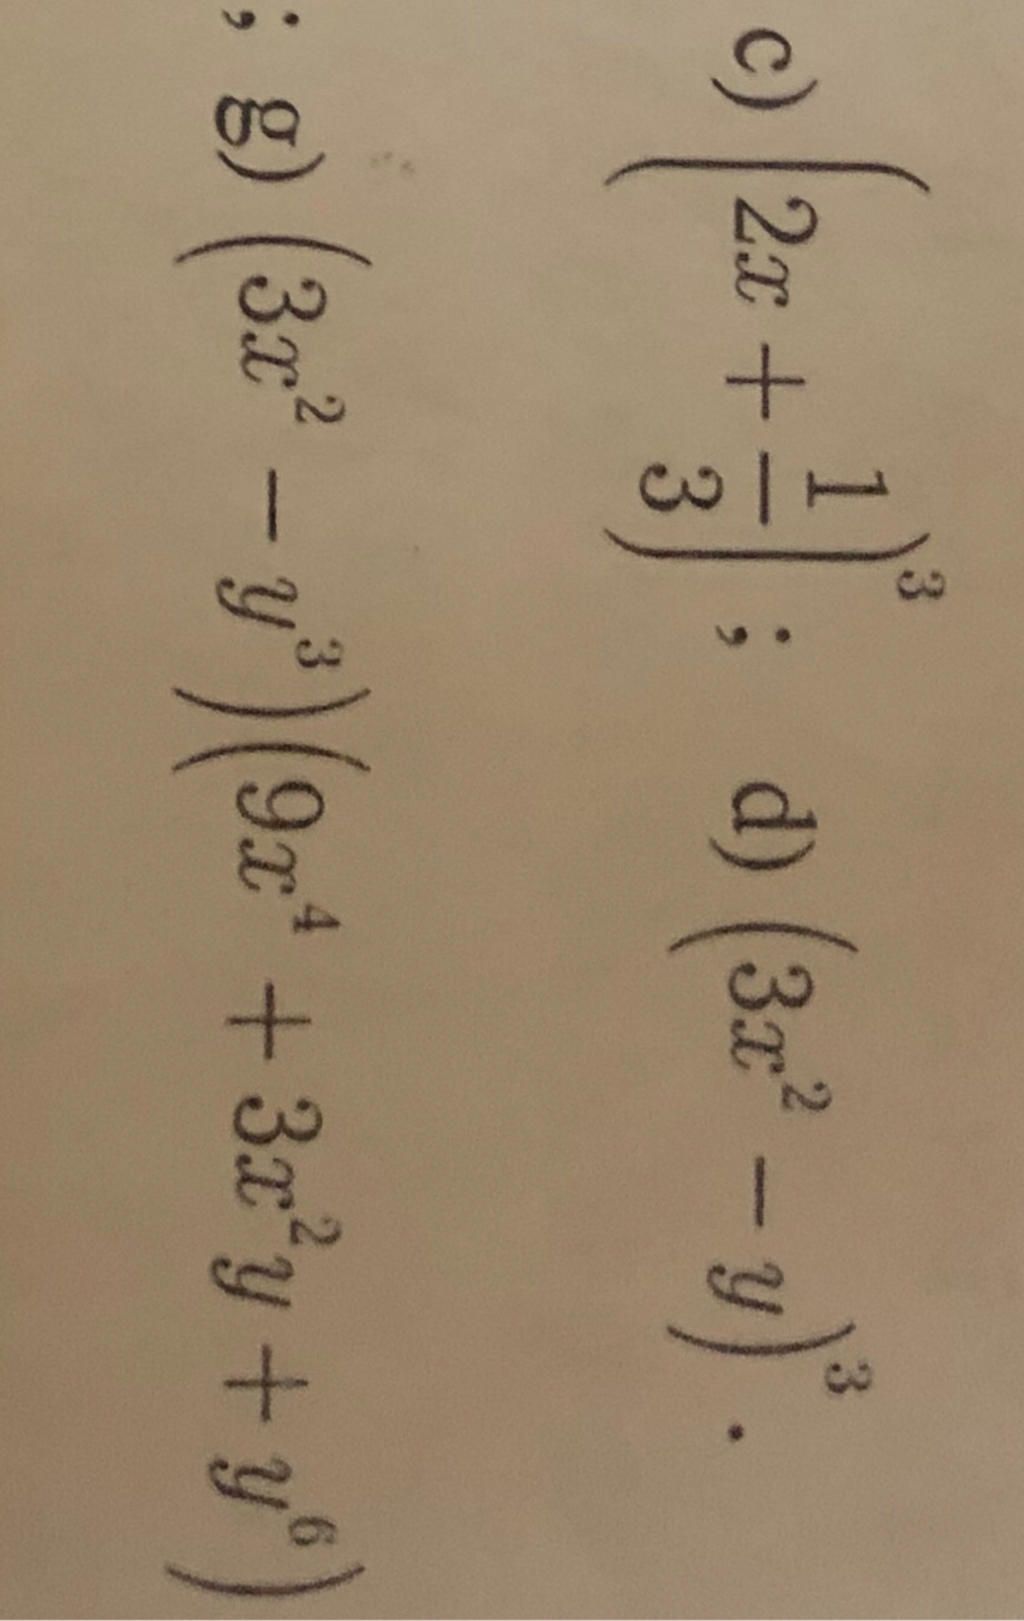 c) (2x + 1/3)³ ; d) (3x² − y)³ .
; g) (3x² − y³)(9x⁴ + 3x²y + y⁶)